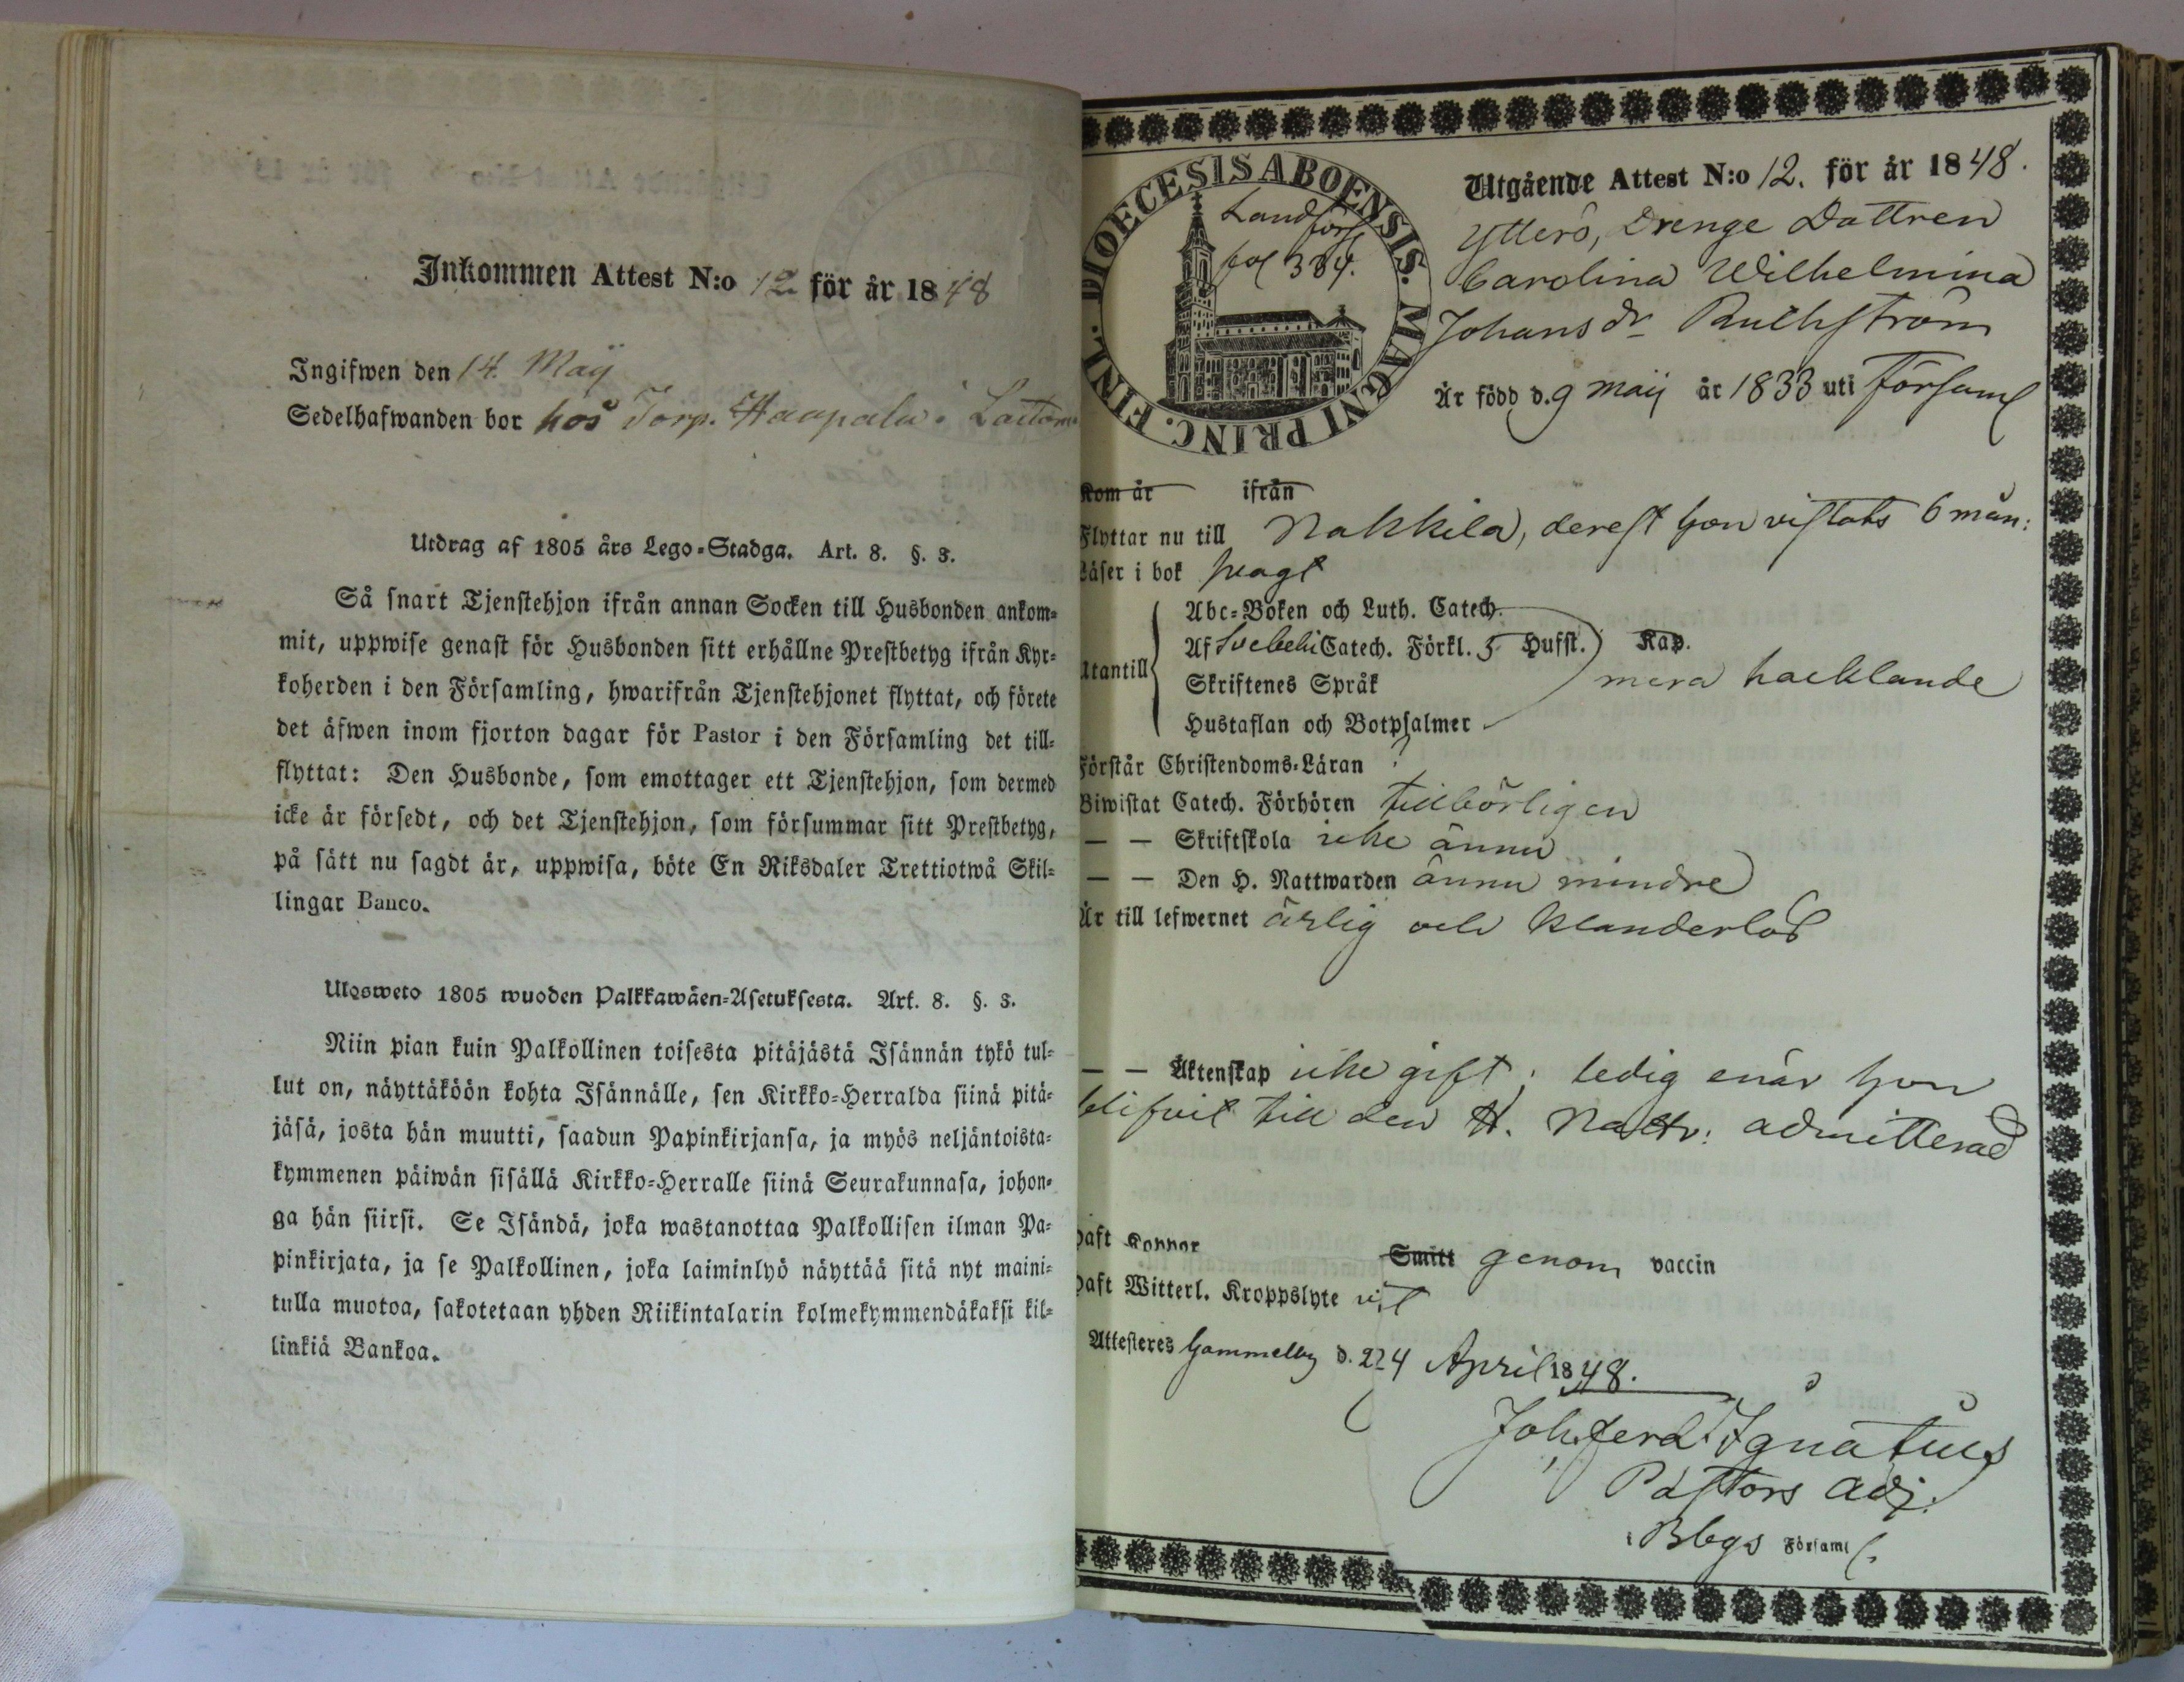 Inkommen Attest N:o 12 för år 1848
Ingifwen den 14. Maij
Sedelhafwanden bor hos Torp. Haapala i
Utdrag af 1805 års Lego-Stadga. Art. 8. §. 3.
Så snart Tjenstehjon ifrån annan Socken till Husbonden ankom-
mit, uppwise genast för Husbonden sitt erhållne Prestbetyg ifrån Kyr-
koherden i den Församling, hwarifrån Tjenstehjonet flyttat, och förete
det äfwen inom fjorton dagar för Pastor i den Församling det till-
flyttat: Den Husbonde, som emottager ett Tjenstehjon, som dermed
icke är försedt, och det Tjenstehjon, som försummar sitt Prestbetyg,
på sätt nu sagdt är, uppwisa, böte En Riksdaler Trettiotwå Skil-
lingar Banco.
Ulosweto 1805 wuoden Palkkawäen-Asetuksesta. Art. 8. §. 3.
Niin pian kuin Palkollinen toisesta pitäjästä Isännän tykö tul-
lut on, näyttäköön kohta Isännälle, sen Kirkko-Herralda siinä pitä-
jäsä, josta hän muutti, saadun Papinkirjansa, ja myös neljäntoista-
kymmenen päiwän sisällä Kirkko-Herralle siinä Seurakunnasa, johon-
ga hän siirsi. Se Isändä, joka wastanottaa Palkollisen ilman Pa-
pinkirjata, ja se Palkollinen, joka laiminlyö näyttää sitä nyt maini-
tulla muotoa, sakotetaan yhden Riikintalarin kolmekymmendäkaksi kil-
linkiä Bankoa.
DIOECESIS ABOENSIS. MAGNI PRINC. FINL.
Landförs
fol 384.
Utgående Attest N:o 12. för år 1848.
Ytterö, Drenge Dottren
Carolina Wilhelmina
Johansdr Ruthström
Är född d. 9 maij år 1833 uti Församl
Kom år ifrån
Flyttar nu till Nakkila, derest hon vistats 6 mån:
Läser i bok svagt
Utantill
Abc-Boken och Luth. Catech.
Af Svebelii Catech. Förkl. 5 Hufst. Kap.
Skriftenes Språk
mera hacklande
Hustaflan och Botpsalmer
Förstår Christendoms-Läran ?
Biwistat Catech. Förhören tillbörligen
— — Skriftskola icke ännu
— — Den H. Nattwarden ännu mindre
Är till lefwernet ärlig och klanderlös
— — Äktenskap icke gift; ledig enär hon
blifvit till den H. Nattv: admitterad
Haft Koppor Smitt genom vaccin
Haft Witterl. Kroppslyte
Attesteres Gammelby d. 224 April 1848.
Joh. Ferd. Ignatius
Pastors Adj.
i Bbgs Församl.